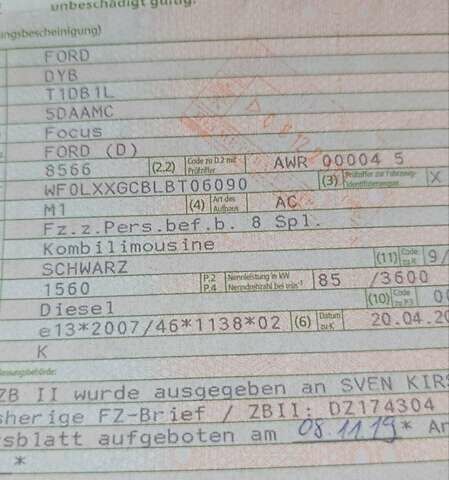 unbeschädigt gültig.
ungsbescheinigung)
FORD
DYB
T1DB1L
5DAAMC
Focus
FORD (D)
8566 (2.2) Code zu D.2 mit Prüfziffer AWR 00004 5
WF0LXXGCBLBT06090 (3) Prüfziffer zur Fahrzeug-Identifizierungsnr. X
M1 (4) Art des Aufbaus AC
Fz.z.Pers.bef.b. 8 Spl.
Kombilimousine
SCHWARZ (11) Code zu R 9/
1560 P.2 P.4 Nennleistung in kW Nenndrehzahl bei min⁻¹ 85 /3600
Diesel (10) Code zu P.3
e13*2007/46*1138*02 (6) Datum zu K 20.04.20
K
ZB II wurde ausgegeben an SVEN KIRS
sherige FZ-Brief / ZBII: DZ174304
sblatt aufgeboten am 08.11.19 *
*